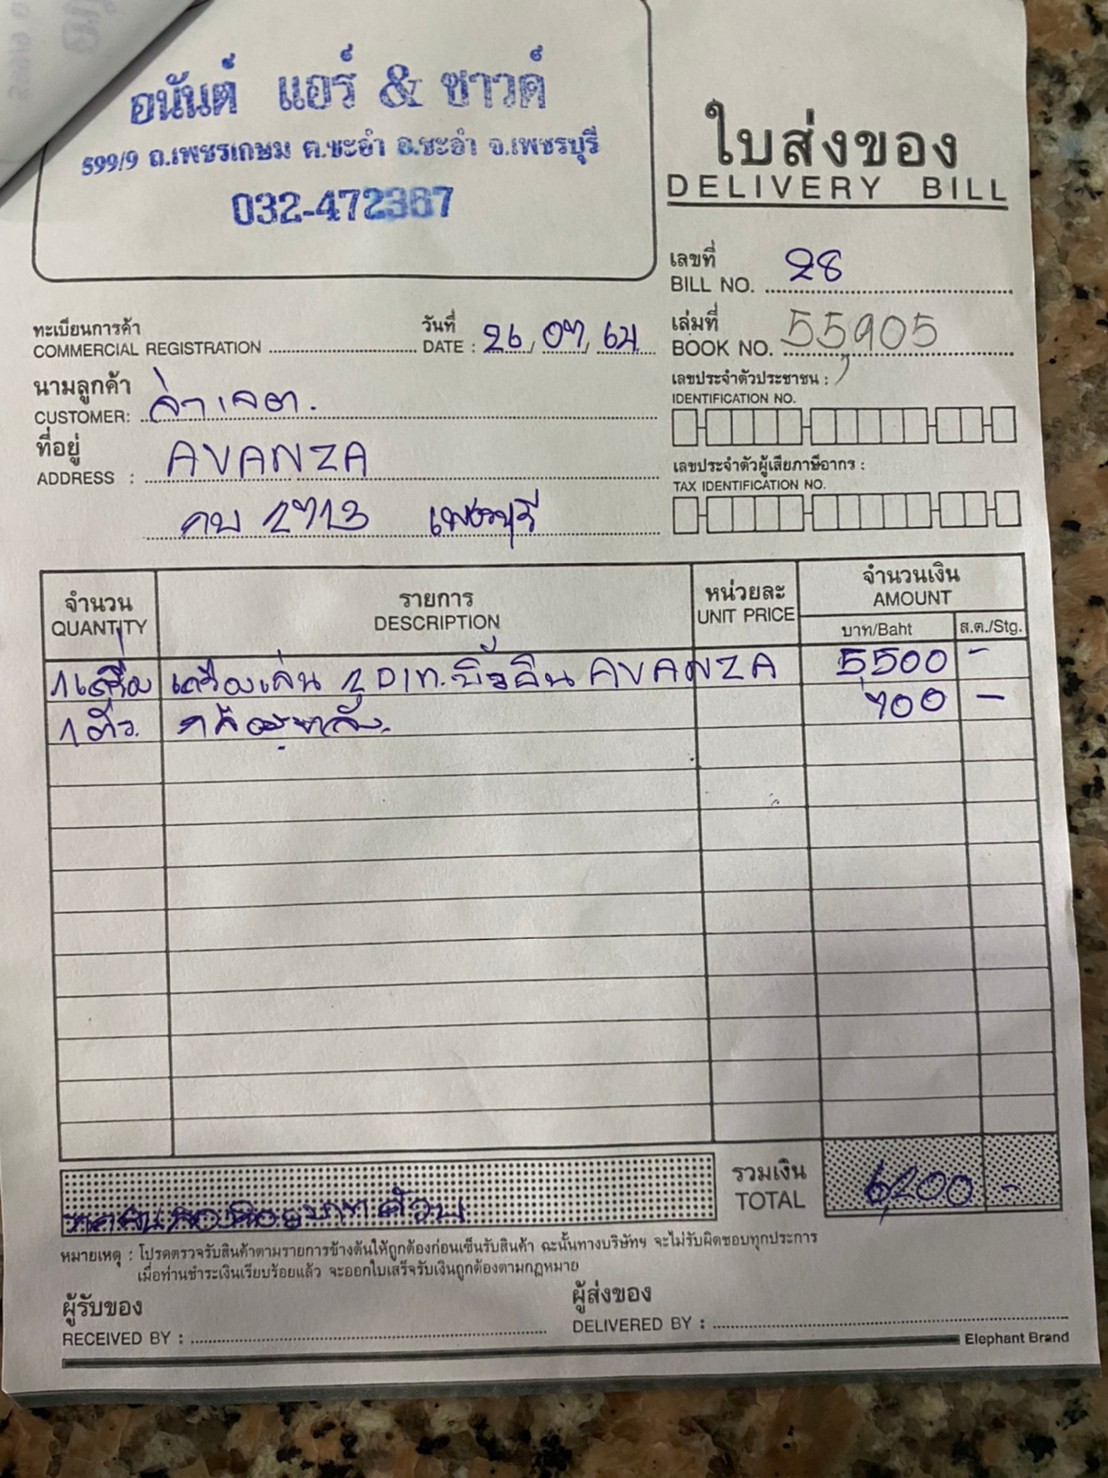 อนันต์ แอร์ & ซาวด์
599/9 ถ.เพชรเกษม ต.ชะอำ อ.ชะอำ จ.เพชรบุรี
032-472367
ใบส่งของ
DELIVERY BILL
เลขที่
BILL NO. 28
ทะเบียนการค้า
COMMERCIAL REGISTRATION
วันที่
DATE : 26, 07, 64
เล่มที่
BOOK NO. 55905
นามลูกค้า
CUSTOMER:
เลขประจำตัวประชาชน :
IDENTIFICATION NO.
ที่อยู่
ADDRESS : AVANZA
เลขประจำตัวผู้เสียภาษีอากร :
TAX IDENTIFICATION NO.
1713 เพชรบุรี
จำนวน
QUANTITY
รายการ
DESCRIPTION
หน่วยละ
UNIT PRICE
จำนวนเงิน
AMOUNT
บาท/Baht
ส.ต./Stg.
1 เครื่อง เครื่องเล่น 2 DIN. AVANZA 5500 -
1 ตัว. 700 -
รวมเงิน
TOTAL 6,200 -
หกพันสองร้อยบาทถ้วน
หมายเหตุ : โปรดตรวจรับสินค้าตามรายการข้างต้นให้ถูกต้องก่อนเซ็นรับสินค้า ฉะนั้นทางบริษัทฯ จะไม่รับผิดชอบทุกประการ
เมื่อท่านชำระเงินเรียบร้อยแล้ว จะออกใบเสร็จรับเงินถูกต้องตามกฎหมาย
ผู้รับของ
RECEIVED BY :
ผู้ส่งของ
DELIVERED BY :
Elephant Brand